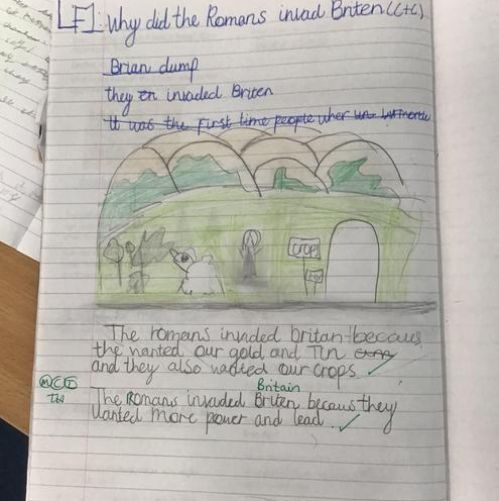 LF: Why did the Romans invad Briten (C+C)
Brian dump
they invaded Briten
It was the first time people wher
crops
The romans invaded britan becaus
the wanted our gold and Tin
and they also wanted our crops
Britain
The Romans invaded Briten becaus they
wanted more power and lead